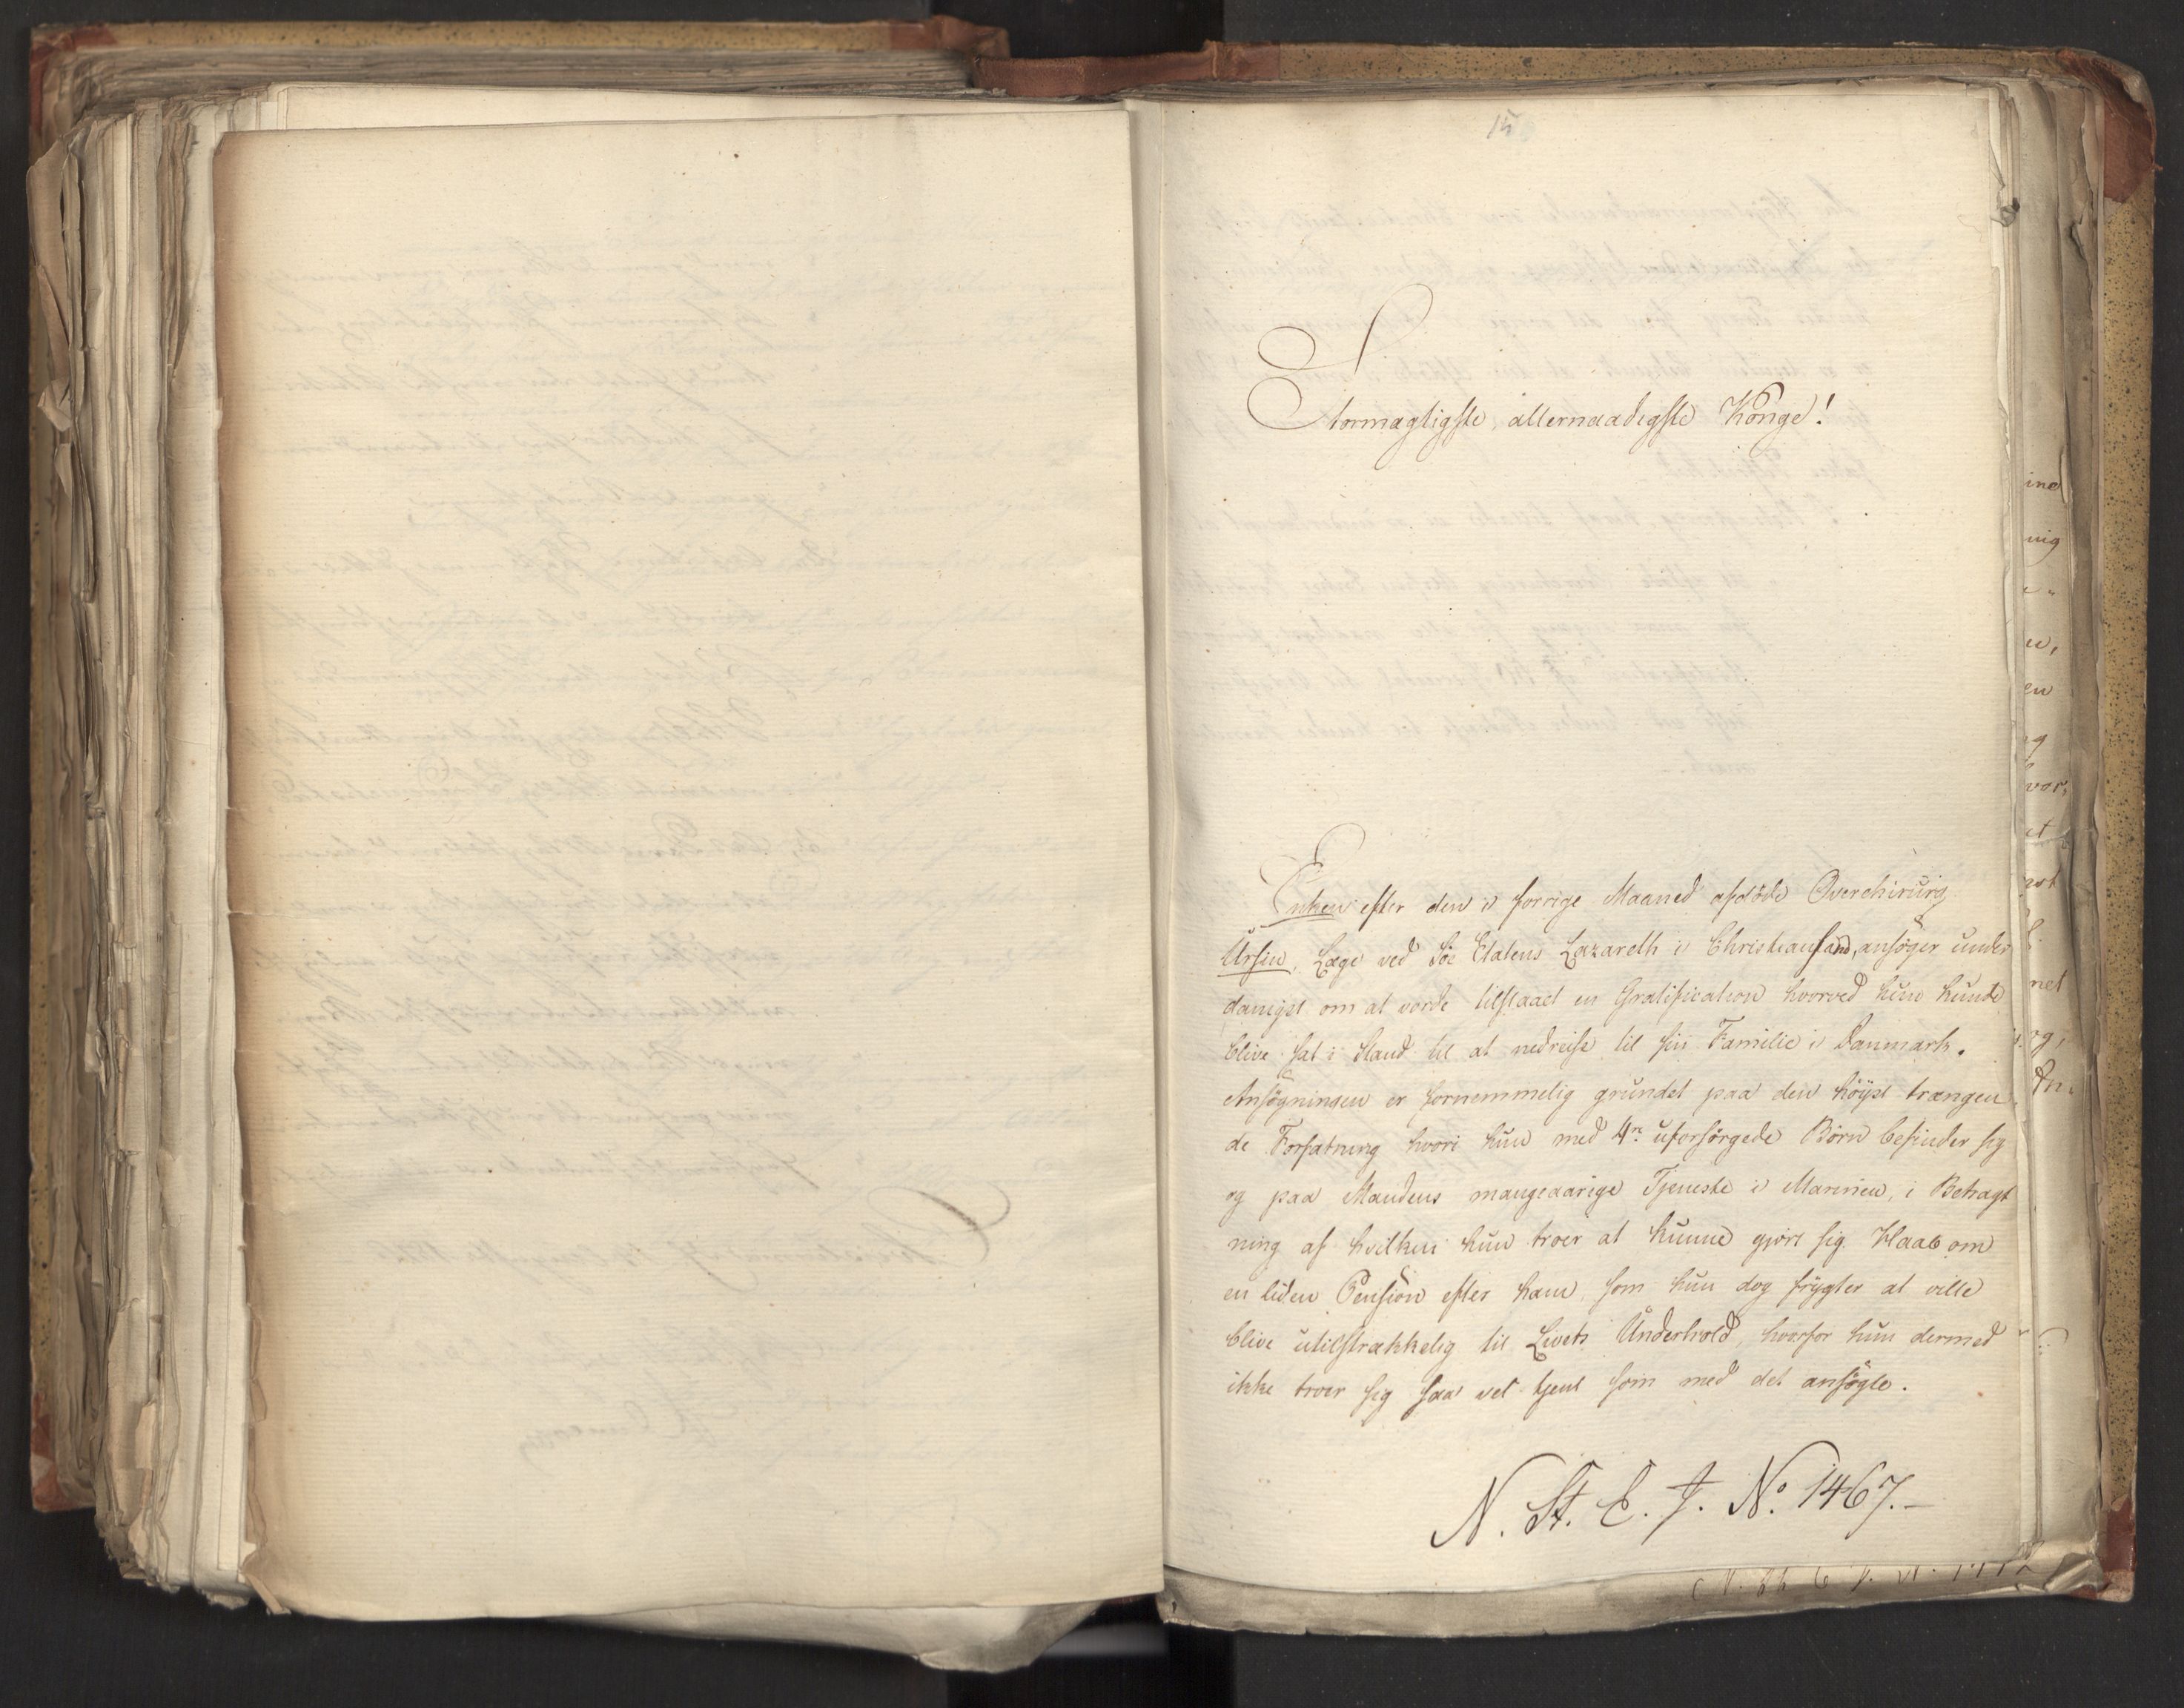 15
Stormægtigste, allernaadigste Konge!
Enken efter den i forrige Maaned afdöde Overchirurg
Ursin, Læge ved Söe Etatens Lazareth i Christiansand, ansöger under
danigst om at vorde tilstaaet en Gratification hvorved hun kunde
blive sat i Stand til at nedreise til sin Familie i Danmark.
Ansögningen er fornemmelig grundet paa den höist trængen
de Forfatning hvori hun med 4re uforsörgede Börn befinder sig
og paa Mandens mangeaarige Tjeneste i Marinen, i Betragt
ning af hvilken hun troer at kunne gjöre sig Haab om
en liden Pension efter ham, som hun dog frygter at ville
blive utilstrækkelig til Livets Underhold, hvorfor hun dermed
ikke troer sig saa vel tjent som med det ansögte.
N. St. E. J. No. 1467.-